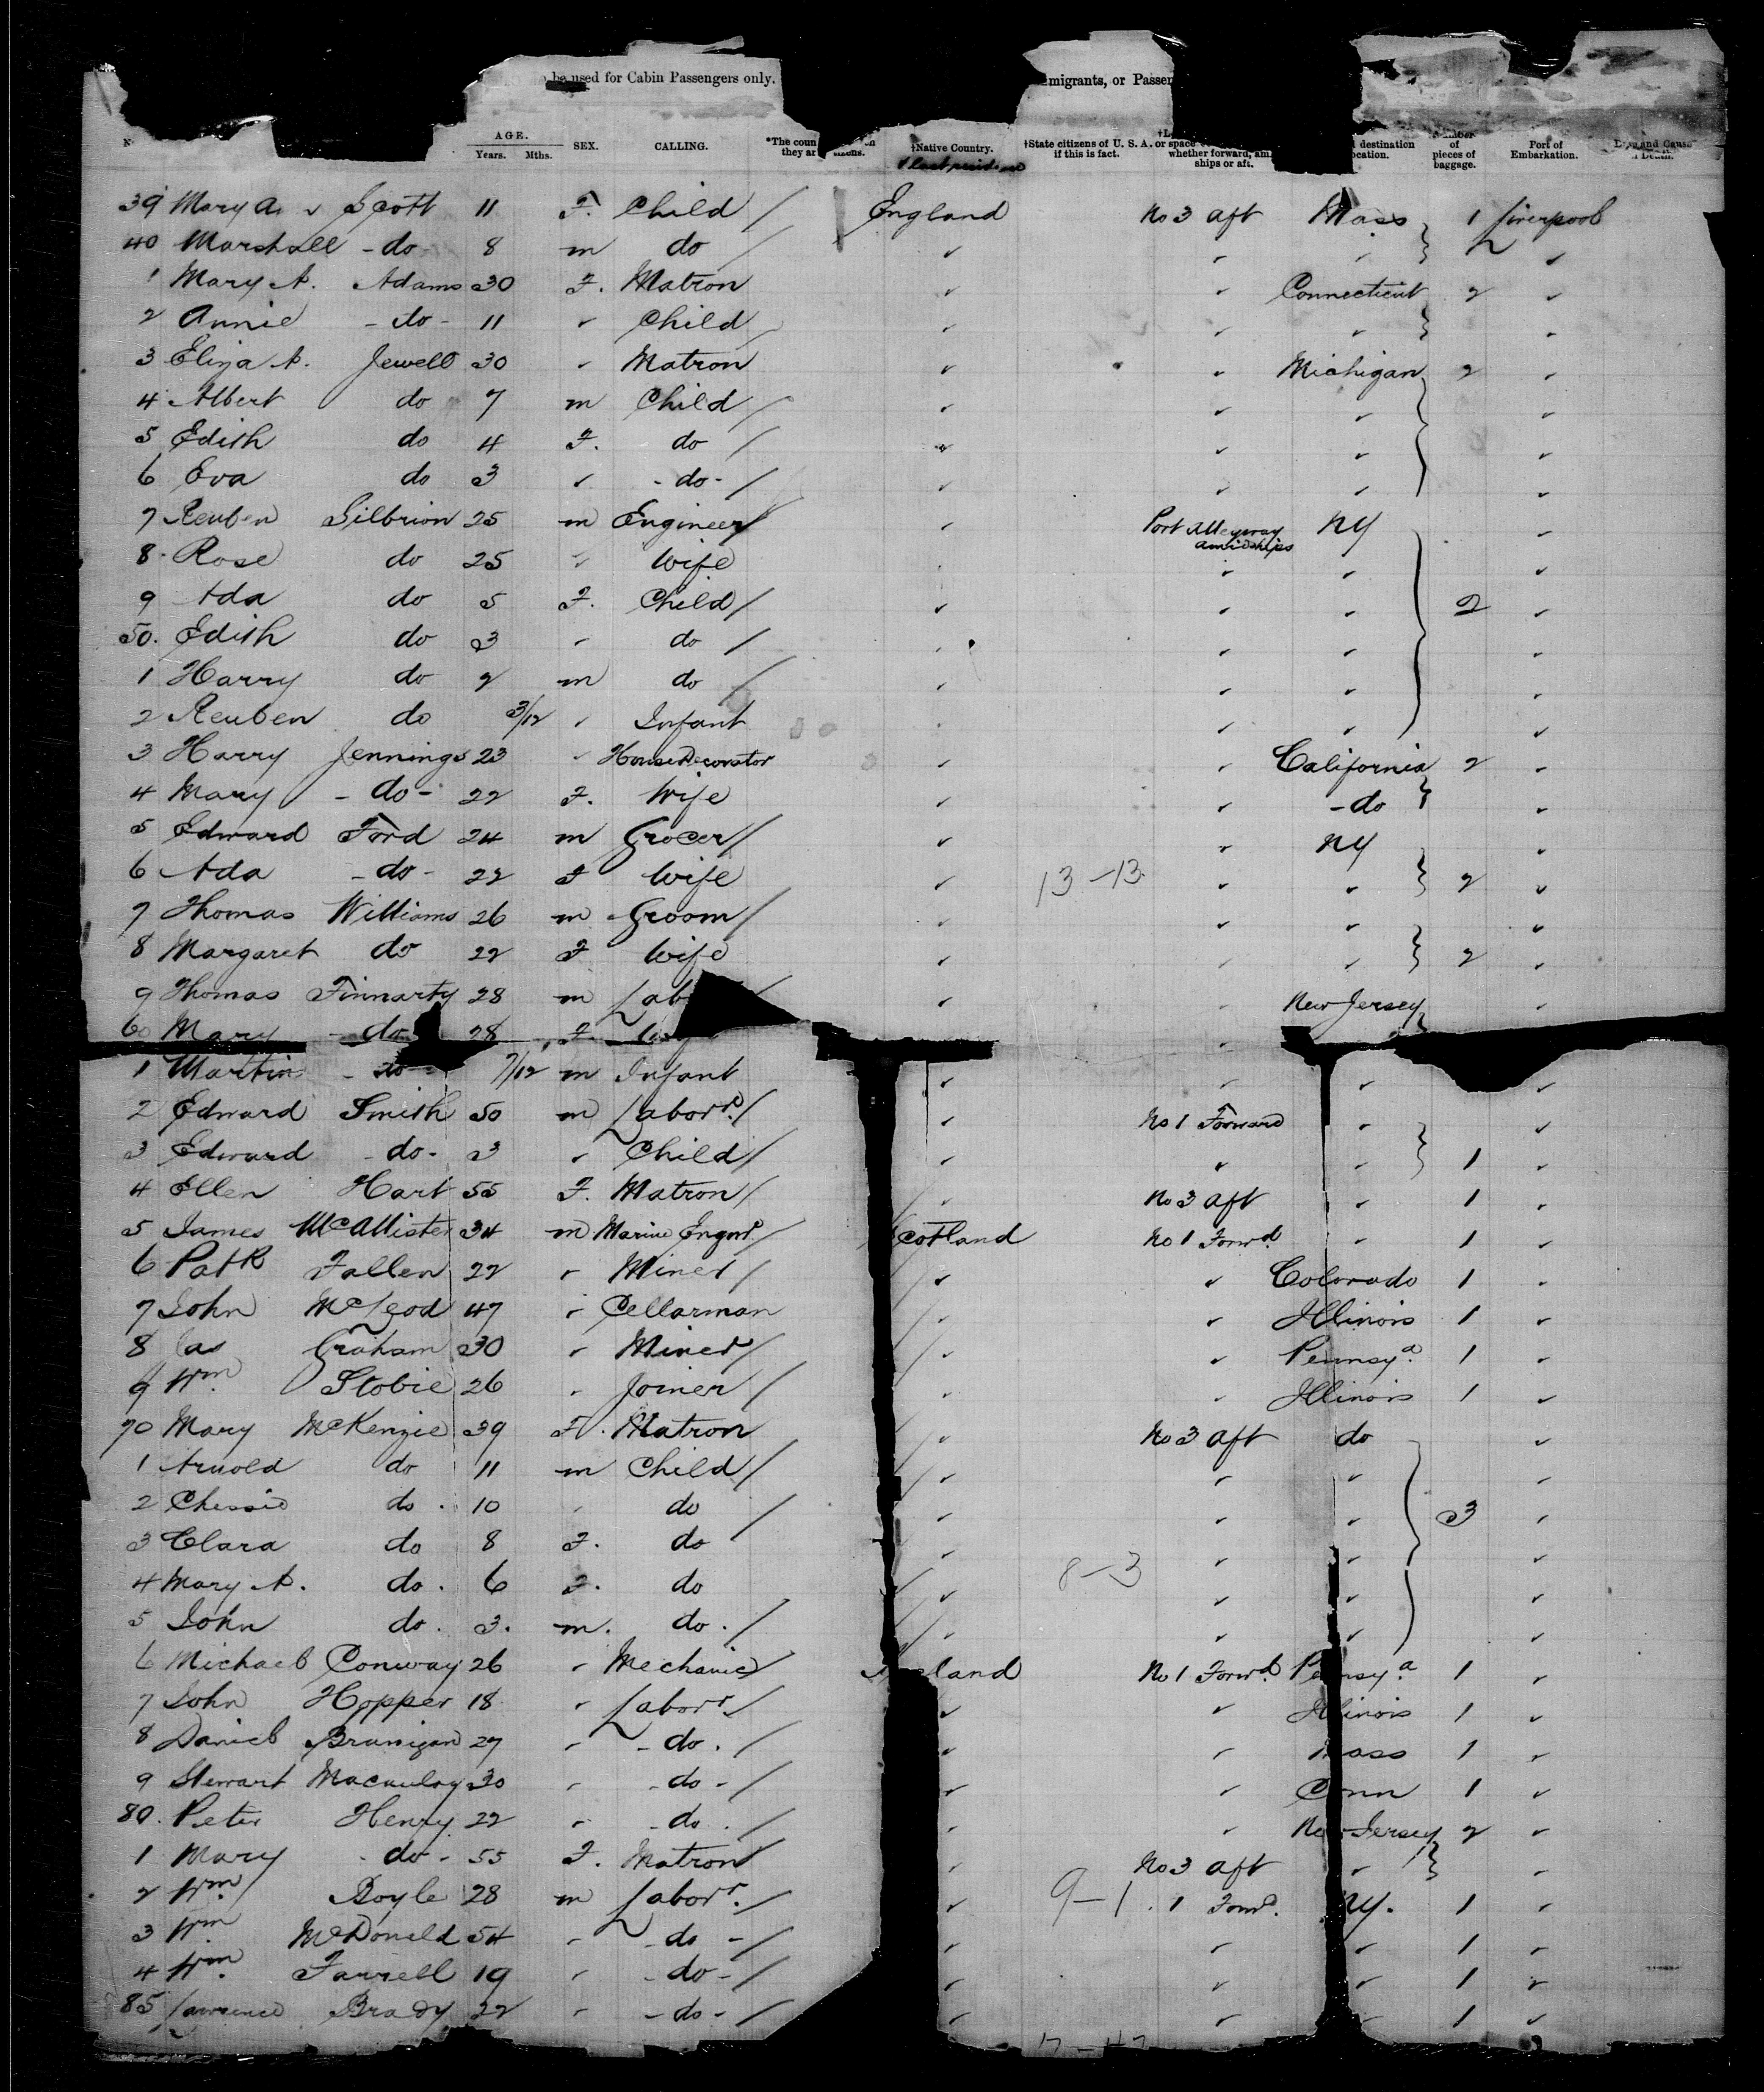 be used for Cabin Passengers only. migrants, or Passen
AGE. Years. Mths. SEX. CALLING. *The coun they ar †Native Country. †State citizens of U. S. A. if this is fact. or space whether forward, am ships or aft. destination ocation. of pieces of baggage. Port of Embarkation. and Cause
39 Mary A. Scott 11 F. Child / England No 3 aft Mass 1 Liverpool
40 Marshall - do - 8 m do / ✓ ✓ ✓ ✓
1 Mary A. Adams 30 F. Matron ✓ ✓ Connecticut 2 ✓
2 Annie - do - 11 ✓ Child ✓ ✓ ✓ ✓
3 Eliza A. Jewell 30 ✓ Matron ✓ ✓ Michigan 2 ✓
4 Albert do 7 m Child / ✓ ✓ ✓ ✓
5 Edith do 4 F. do / ✓ ✓ ✓ ✓
6 Eva do 3 ✓ - do - / ✓ ✓ ✓ ✓
7 Reuben Silbrion 25 m Engineer / ✓ Port Alleyway amidships NY ✓
8 Rose do 25 ✓ Wife ✓ ✓ ✓
9 Ada do 5 F. Child / ✓ ✓ ✓ 2 ✓
50. Edith do 3 ✓ do / ✓ ✓ ✓
1 Harry do 2 m do / ✓ ✓ ✓ ✓
2 Reuben do 3/12 ✓ Infant ✓ ✓ ✓
3 Harry Jennings 23 ✓ House Decorator ✓ ✓ California 2 ✓
4 Mary - do - 22 F. Wife ✓ ✓ - do ✓
5 Edward Ford 24 m Grocer / ✓ ✓ NY ✓
6 Ada - do - 22 F Wife ✓ 13 - 13 ✓ ✓ 2 ✓
7 Thomas Williams 26 m Groom / ✓ ✓ ✓ ✓
8 Margaret do 22 F Wife ✓ ✓ ✓ 2 ✓
9 Thomas Finnarty 28 m Lab ✓ ✓ New Jersey ✓
60 Mary - do 28 F. ✓
1 Martin - do - 7/12 m Infant ✓ ✓ ✓ ✓
2 Edward Smith 50 m Labor. / ✓ No 1 Forward ✓ ✓
3 Edward - do - 3 ✓ Child / ✓ ✓ ✓ 1 ✓
4 Ellen Hart 55 F. Matron / ✓ No 3 aft ✓ 1 ✓
5 James McAllister 34 m Marine Engnr / cotland No 1 Forwd. ✓ 1 ✓
6 Patk Fallen 22 ✓ Miner / ✓ ✓ Colorado 1 ✓
7 John McLeod 47 ✓ Cellarman ✓ ✓ Illinois 1 ✓
8 Jas Graham 30 ✓ Miner / ✓ ✓ Pennsya. 1 ✓
9 Wm. Stobie 26 ✓ Joiner / ✓ ✓ Illinois 1 ✓
70 Mary McKenzie 39 F. Matron ✓ No 3 aft do ✓
1 Arnold do 11 m Child / ✓ ✓ ✓ ✓
2 Chessie do. 10 ✓ do / ✓ ✓ ✓ 3 ✓
3 Clara do 8 F. do ✓ ✓ ✓ ✓
4 Mary A. do. 6 F. do ✓ 8 - 3 ✓ ✓ ✓
5 John do. 3. m. do. / ✓ ✓ ✓ ✓
6 Michael Conway 26 ✓ Mechanic / land No 1 Forwd. Pennsya. 1 ✓
7 John Hopper 18 ✓ Labor / ✓ ✓ Illinois 1 ✓
8 Daniel Brannigan 27 ✓ - do. / ✓ ✓ Mass 1 ✓
9 Stewart Macaulay 30 ✓ - do - / ✓ ✓ Conn 1 ✓
80. Peter Henry 22 ✓ - do. / ✓ ✓ New Jersey 2 ✓
1 Mary - do - 55 F. Matron ✓ No 3 aft ✓ ✓
2 Wm. Boyle 28 m Labor. / ✓ 9 - 1 . 1 Forwd. NY. 1 ✓
3 Wm. McDonald 54 ✓ - do - / ✓ ✓ ✓ 1 ✓
4 Wm. Farrell 19 ✓ - do - / ✓ ✓ ✓ 1 ✓
85 Lawrence Brady 22 ✓ - do - / ✓ ✓ ✓ 1 ✓